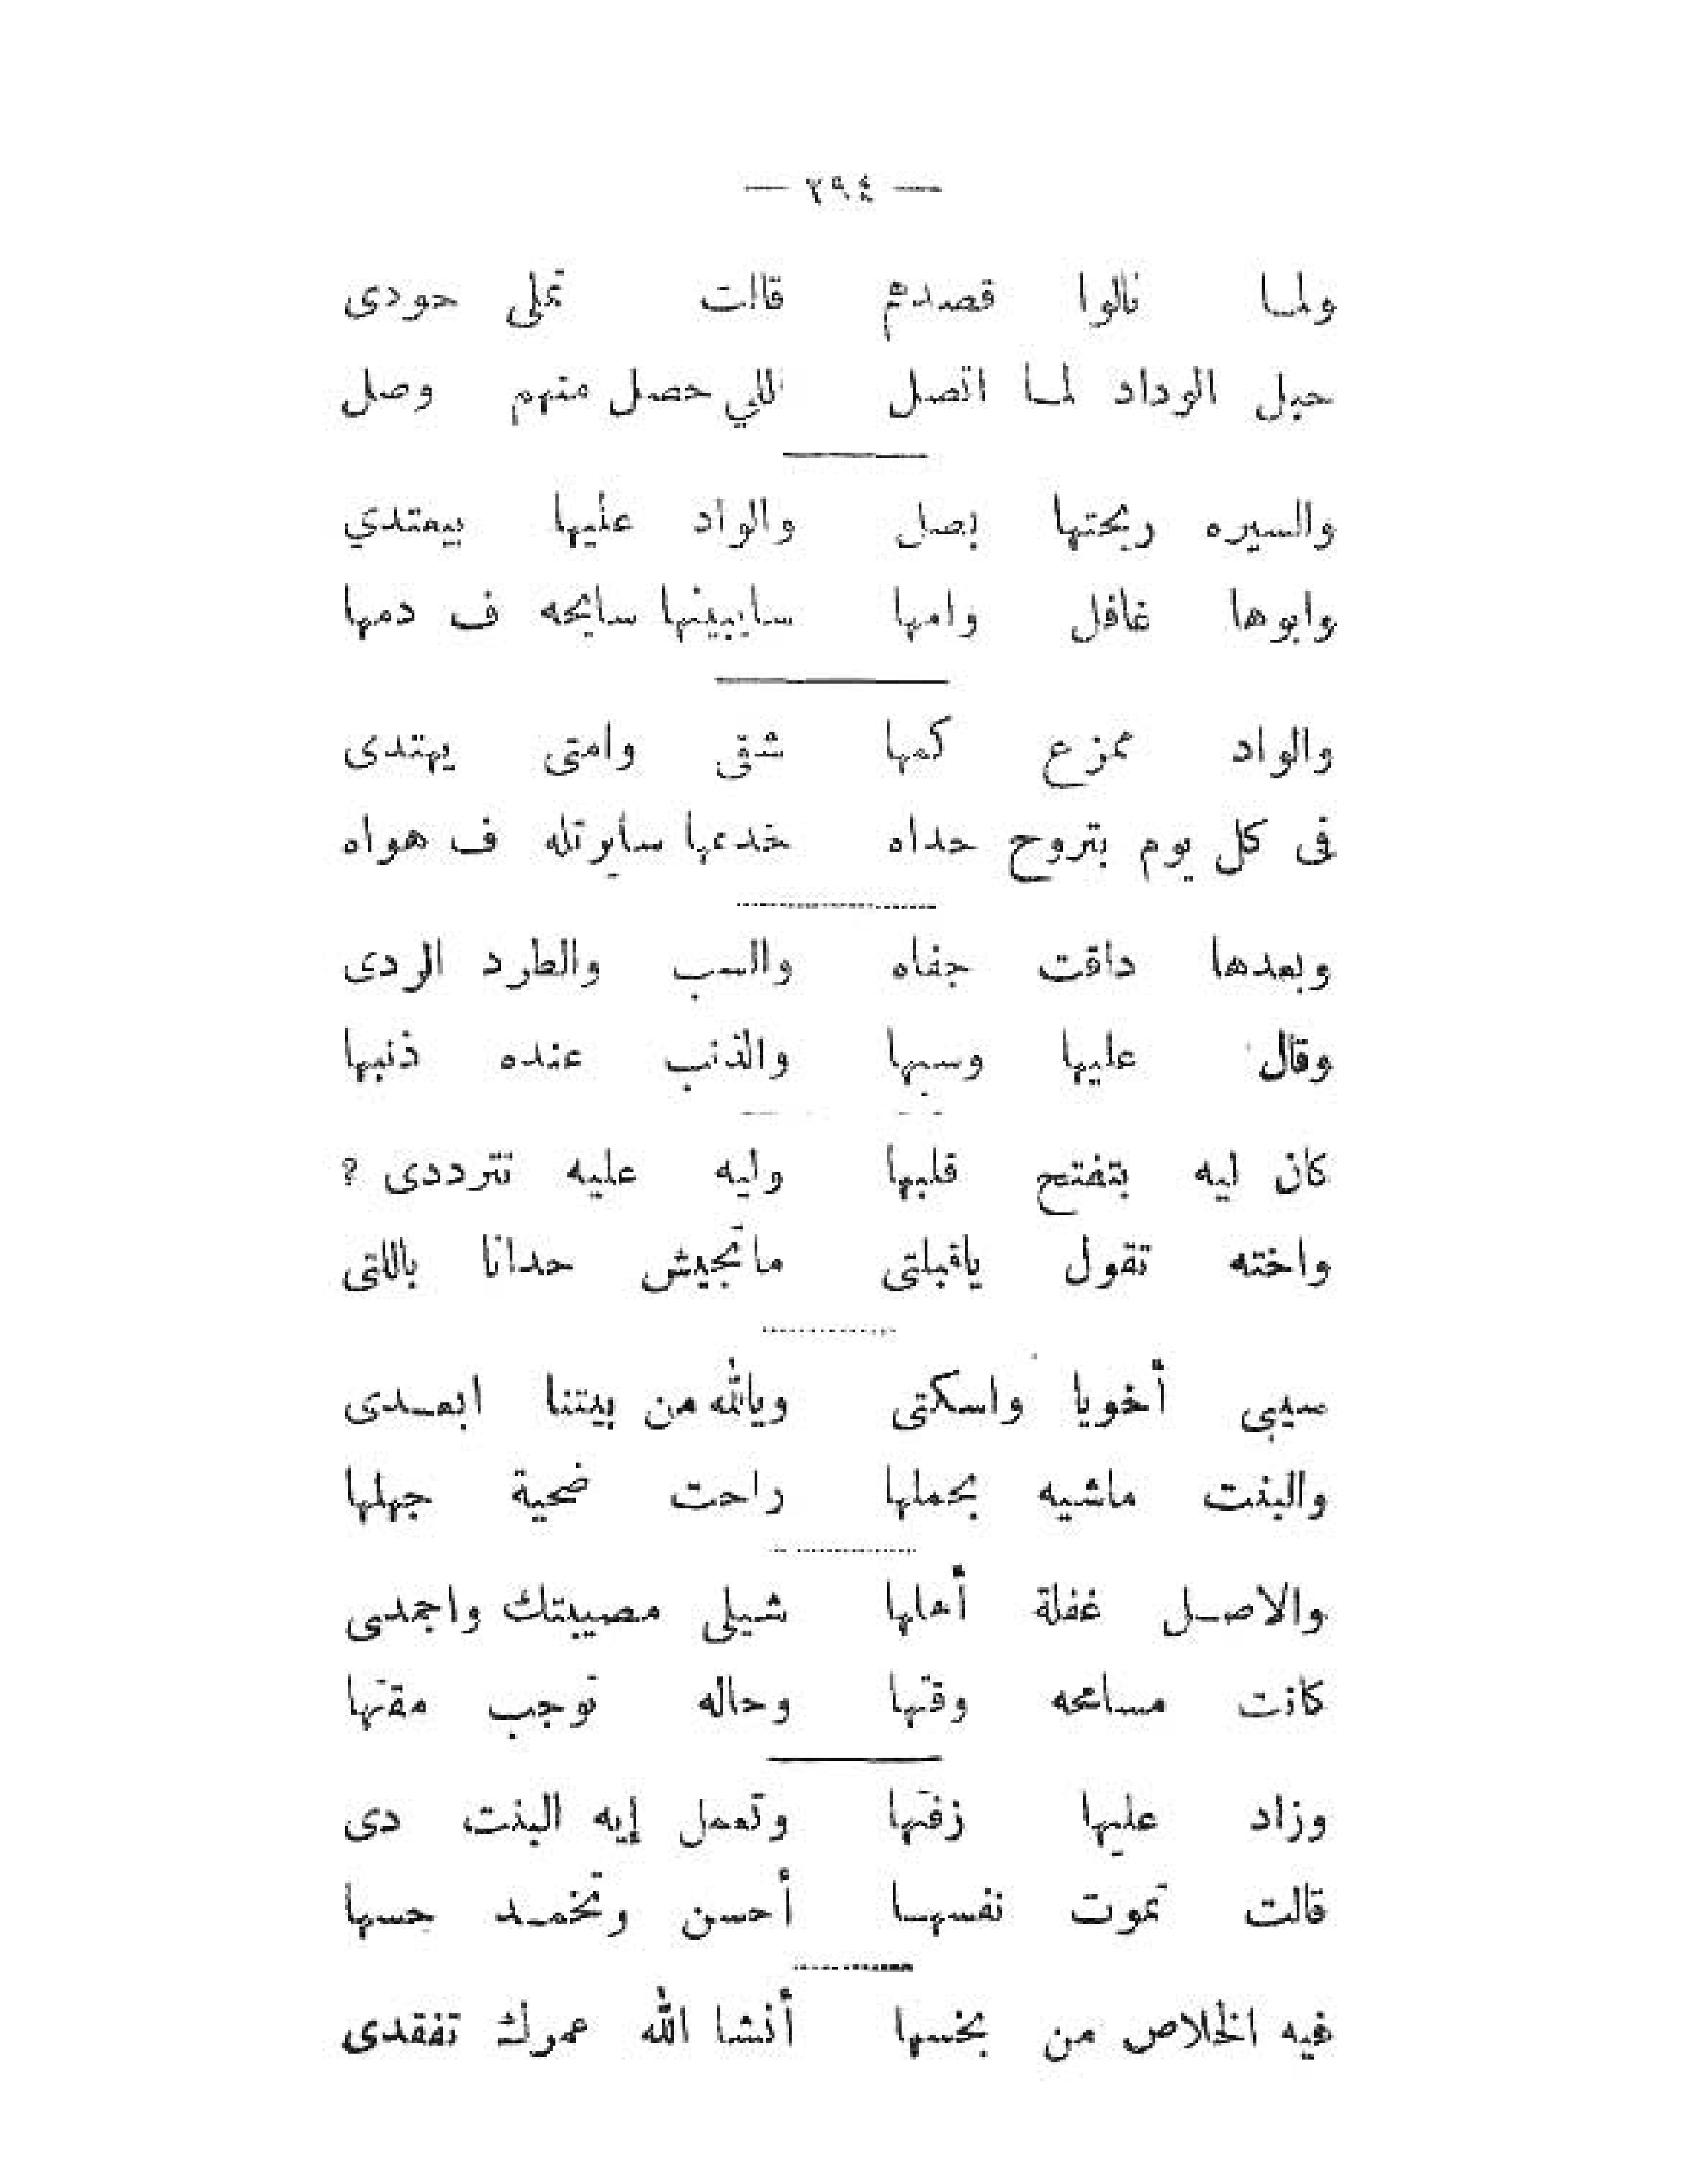 — ٢٩٤ —
ولما نالوا قصدهم قالت تملى حودى
حبل الوداد لما اتصل للي حصل منهم وصل
والسيره ريحتها بصل والواد عليها بيعتدي
وابوها غافل وامها سايبينها سايحه ف دمها
والواد ممزع كمها شقى وامتى يهتدى
فى كل يوم بتروح حداه خدعها سايرتله ف هواه
وبعدها داقت جفاه والسب والطرد الردى
وقال عليها وسبها والذنب عنده ذنبها
كان ليه بتفتح قلبها وليه عليه تترددى ؟
واخته تقول ياقبلتى ماتجيش حدانا باللاتى
سيبى أخويا واسكتى ويالله من بيتنا ابعدى
والبنت ماشيه بحملها راحت ضحية جهلها
والاصل غفلة أهلها شيلى مصيبتك واجمدى
كانت مسامحه وقتها وحاله توجب مقتها
وزاد عليها زفتها وتعمل إيه البنت دى
قالت تموت نفسها أحسن وتخمد حسها
فيه الخلاص من بخسها أنشا الله عمرك تفقدى